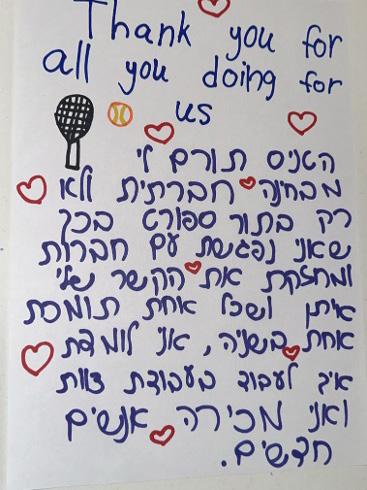 Thank you for
all you doing for
us
הטניס תורם לי
מבחינה חברתית ולא
רק בתור ספורט בכך
שאני נפגשת עם חברות
ומחזקת את הקשר שלי
איתן ושכל אחת תומכת
אחת בשניה, אני לומדת
איך לעבוד בעבודת צוות
ואני מכירה אנשים
חדשים.